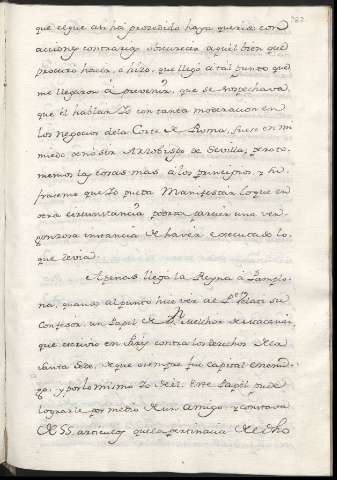 que el que asi há procedido haya querido con
acciones contrarias obscurecer aquel bien que
procuró hacer, ó hizo, que llegó á tal punto que
me llegaron á prevenir, que se sospechava,
que el hablar Yo con tanta moderacion en
los negocios de la Corte de Roma, fuese en mi
miedo de no ser Arzobispo de Sevilla, pero to-
memos las cosas mas á los principios, y
que Yo pueda Manifestar lo que en
otra circunstancia podria parecer una ver-
gonzosa instancia de haver executado lo
que devia.
Apenas llegó la Reyna á Pamplo-
na, quando al punto hice ver al Pe. su
Confesor, un Papel de Dn. Melchor de Macanáz
que escrivio en Paris contra los derechos de la
Santa Sede, de que siempre fue capital enemi-
go, y por lo mismo Yo de él. Este Papel pude
lograrle por medio de un Amigo, y constava
de 55. articulos que la pertinacia de dho